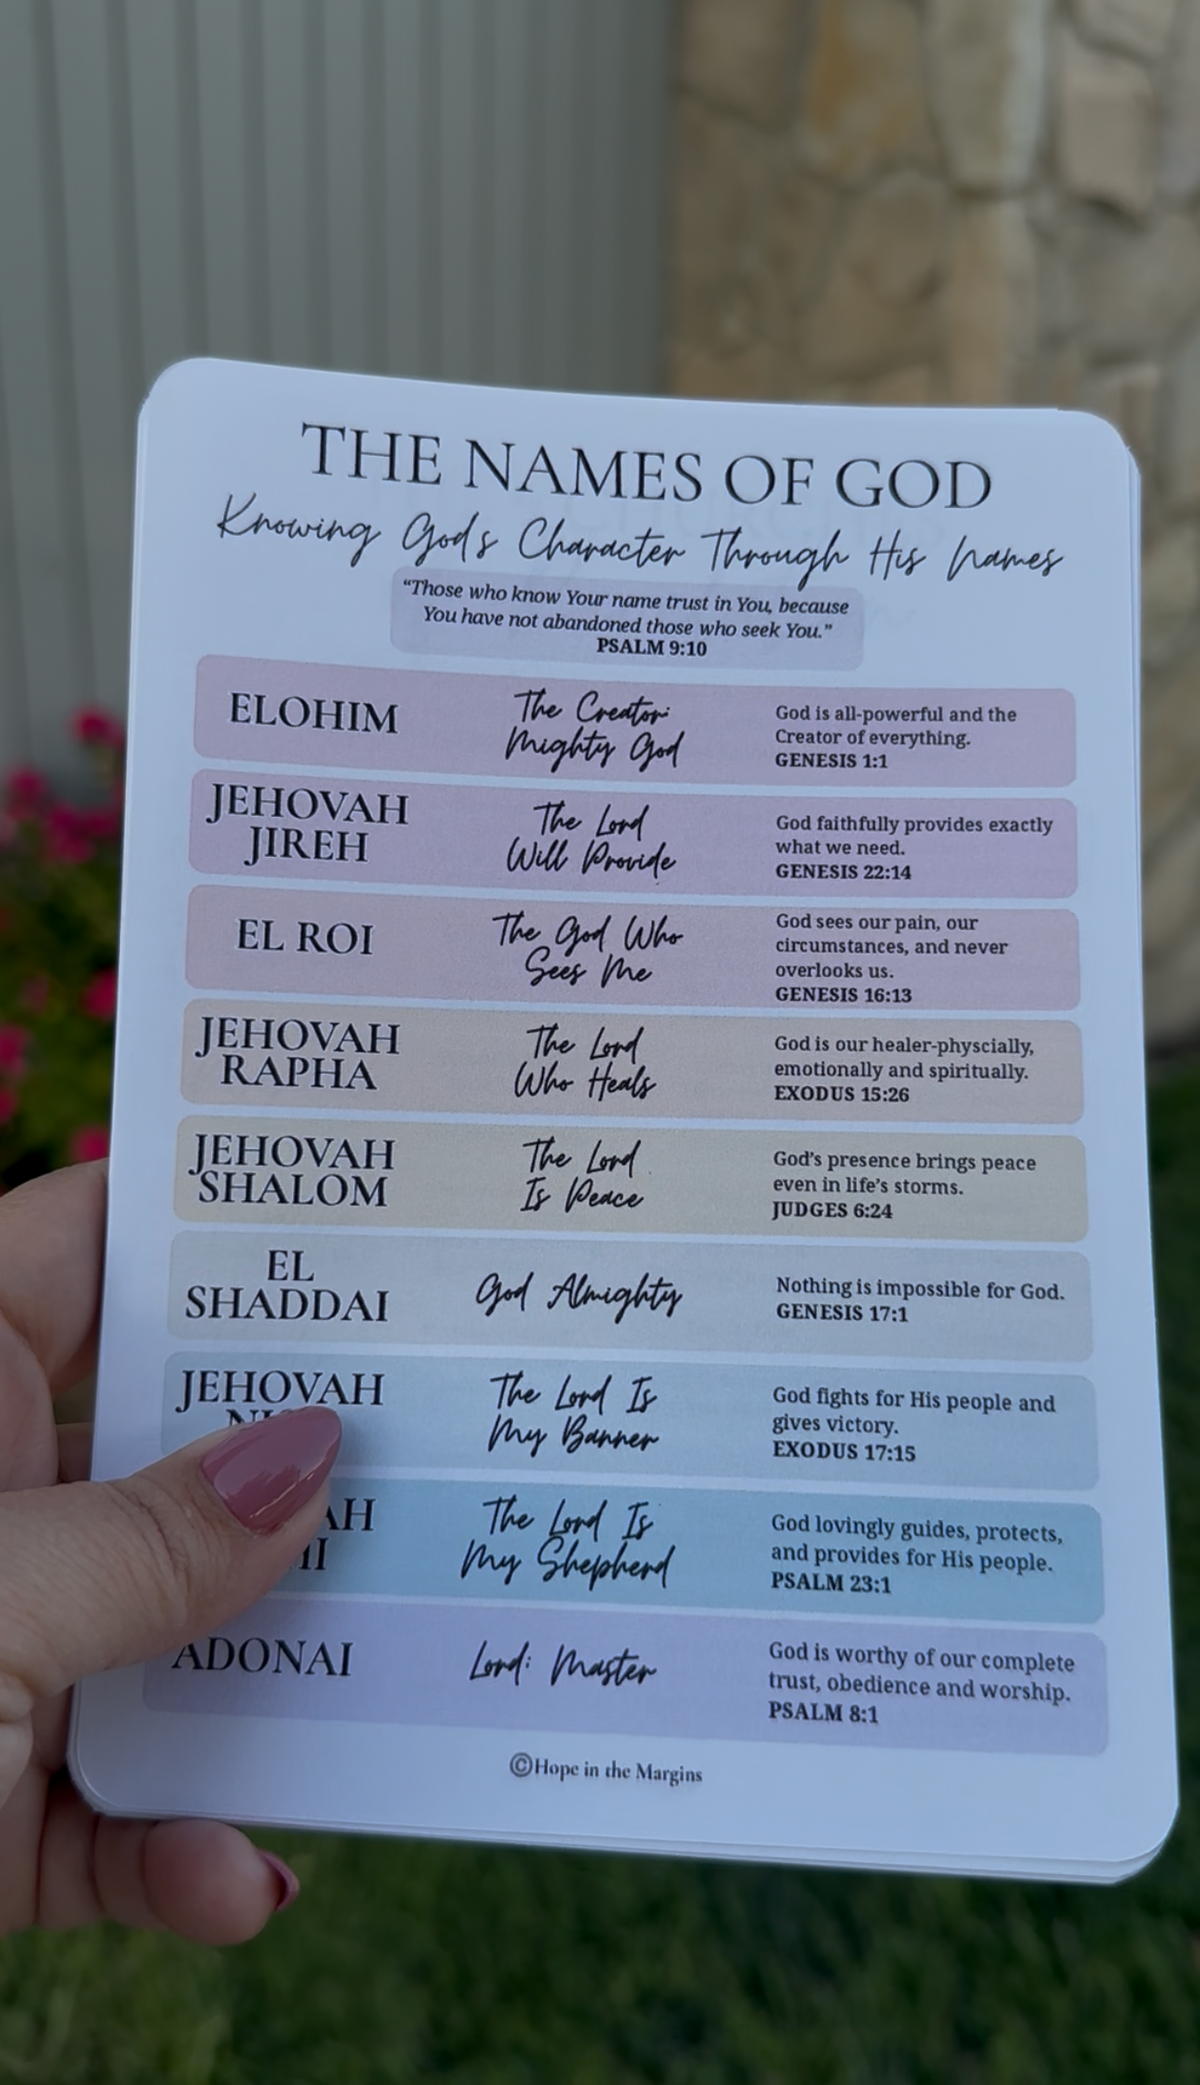 THE NAMES OF GOD
Knowing God's Character Through His Names
"Those who know Your name trust in You, because
You have not abandoned those who seek You."
PSALM 9:10
ELOHIM
The Creator:
Mighty God
God is all-powerful and the
Creator of everything.
GENESIS 1:1
JEHOVAH
JIREH
The Lord
Will Provide
God faithfully provides exactly
what we need.
GENESIS 22:14
EL ROI
The God Who
Sees Me
God sees our pain, our
circumstances, and never
overlooks us.
GENESIS 16:13
JEHOVAH
RAPHA
The Lord
Who Heals
God is our healer-physcially,
emotionally and spiritually.
EXODUS 15:26
JEHOVAH
SHALOM
The Lord
Is Peace
God's presence brings peace
even in life's storms.
JUDGES 6:24
EL
SHADDAI
God Almighty
Nothing is impossible for God.
GENESIS 17:1
JEHOVAH
The Lord Is
My Banner
God fights for His people and
gives victory.
EXODUS 17:15
The Lord Is
My Shepherd
God lovingly guides, protects,
and provides for His people.
PSALM 23:1
ADONAI
Lord: Master
God is worthy of our complete
trust, obedience and worship.
PSALM 8:1
©Hope in the Margins